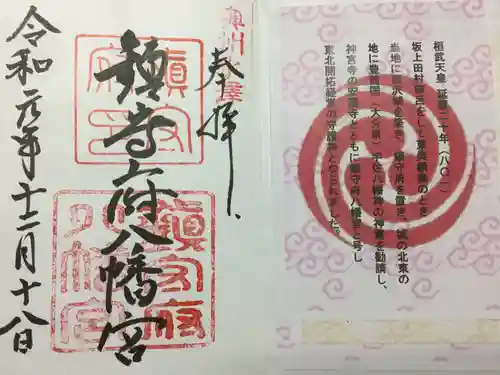 桓武天皇 延暦二十年（八〇一）
坂上田村麻呂をして東奥鎮撫のとき
当地に胆沢城を築き、鎮守府を置き、城の北東の
地に豊前国（大分県）宇佐八幡神の神霊を勧請し、
神宮寺の安国寺とともに鎮守府八幡宮と号し
東北開拓経営の守護神とされました。
奥州
奉拝
鎮守府八幡宮
鎮守府
八幡宮
令和元年十二月十八日